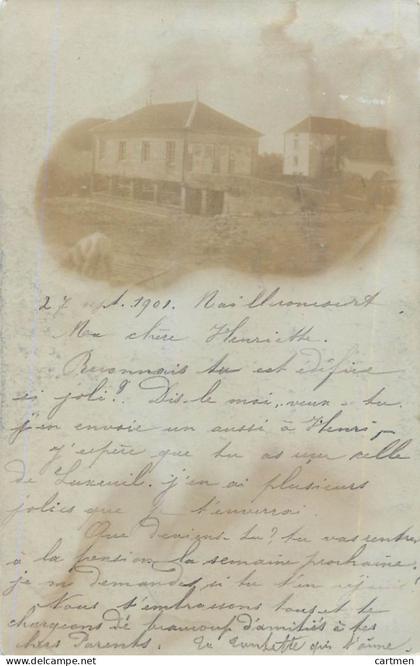 27 sept. 1901. Nailloncourt
Ma chère Henriette.
Reconnais tu cet édifice
si joli? Dis-le moi, veux-tu
j'en envoie un aussi à Henri,
J'espère que tu as reçu celle
de Luxeuil. j'en ai plusieurs
jolies que je t'enverrai.
Que deviens-tu? tu vas rentrer
à la pension la semaine prochaine.
je me demande si tu t'en réjouis
Nous t'embrassons tous et te
chargeons de beaucoup d'amitiés à tes
chers Parents. Ta qui t'aime
cartmen © delcampe.net